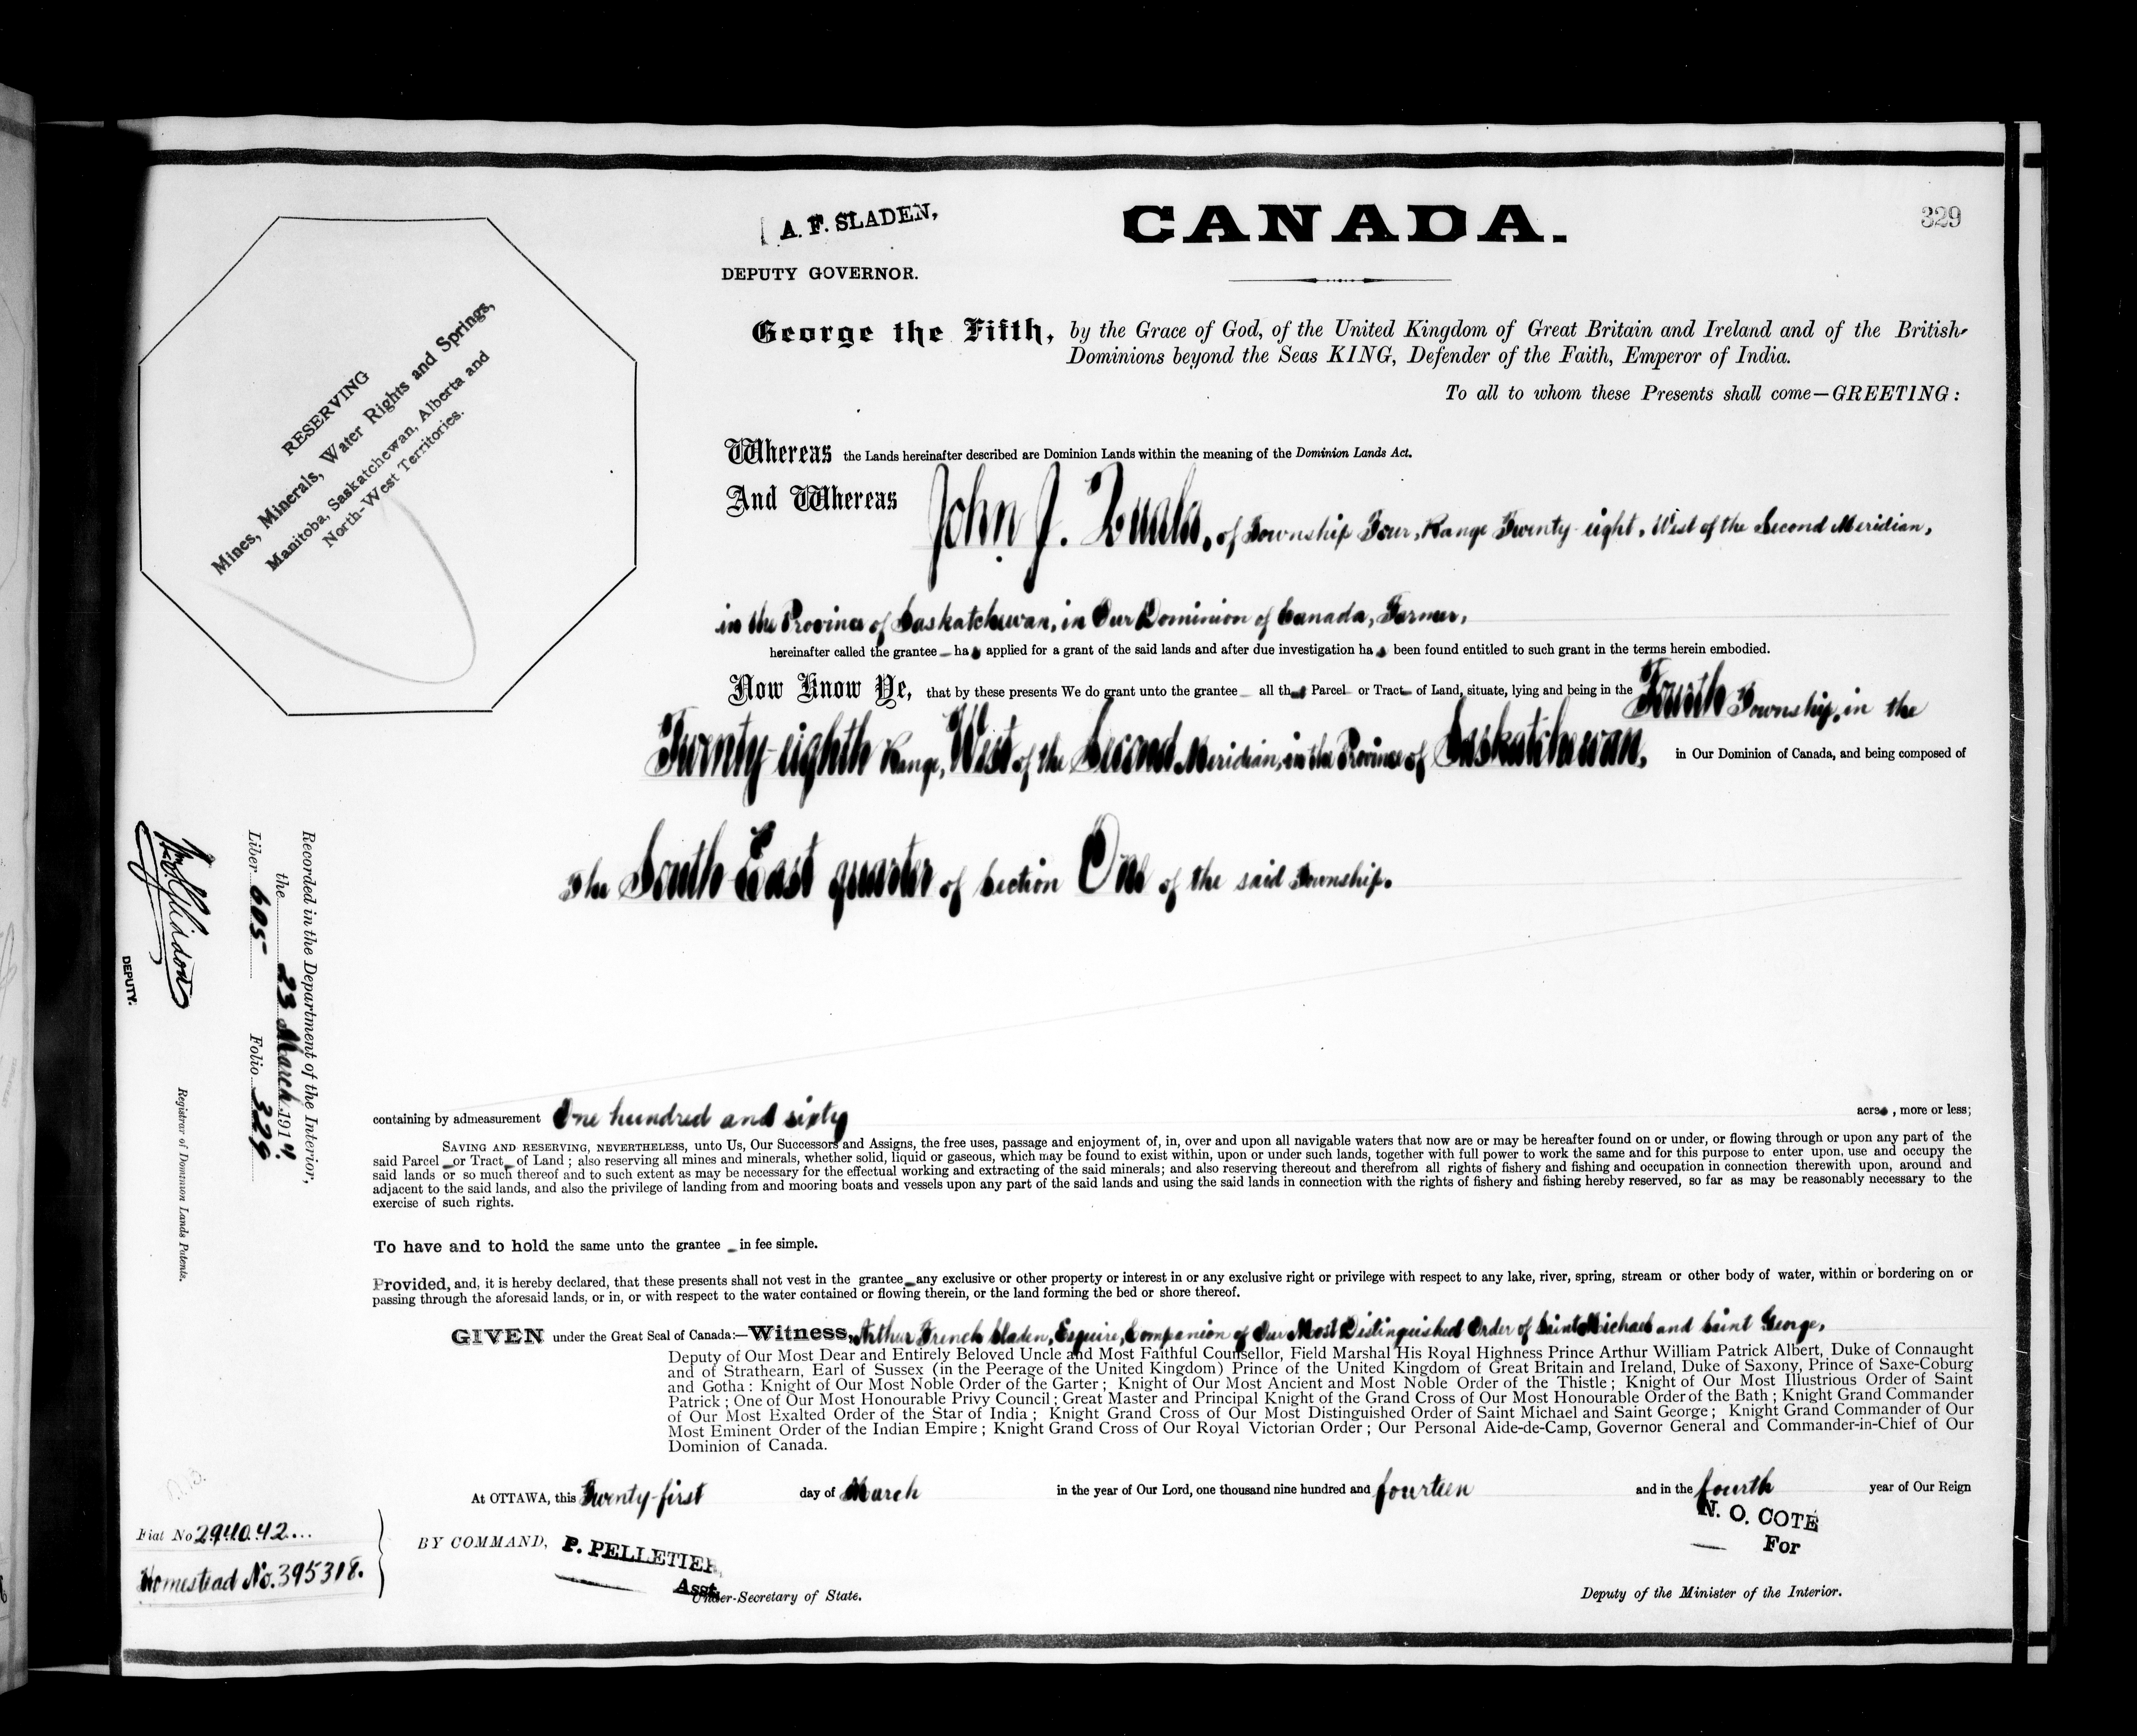 329
A. F. SLADEN,
DEPUTY GOVERNOR.
CANADA.
RESERVING
Mines, Minerals, Water Rights and Springs,
Manitoba, Saskatchewan, Alberta and
North-West Territories.
George the Fifth, by the Grace of God, of the United Kingdom of Great Britain and Ireland and of the British
Dominions beyond the Seas KING, Defender of the Faith, Emperor of India.
To all to whom these Presents shall come—GREETING:
Whereas the Lands hereinafter described are Dominion Lands within the meaning of the Dominion Lands Act.
And Whereas John J. of Township Four, Range Twenty-eight, West of the Second Meridian,
in the Province of Saskatchewan, in Our Dominion of Canada, Farmer,
hereinafter called the grantee has applied for a grant of the said lands and after due investigation has been found entitled to such grant in the terms herein embodied.
Now Know Ye, that by these presents We do grant unto the grantee all that Parcel or Tract of Land, situate, lying and being in the Fourth Township, in the
Twenty-eighth Range, West of the Second Meridian, in the Province of Saskatchewan, in Our Dominion of Canada, and being composed of
The South East quarter of Section One of the said Township.
containing by admeasurement One hundred and sixty acres, more or less;
SAVING AND RESERVING, NEVERTHELESS, unto Us, Our Successors and Assigns, the free uses, passage and enjoyment of, in, over and upon all navigable waters that now are or may be hereafter found on or under, or flowing through or upon any part of the
said Parcel or Tract of Land; also reserving all mines and minerals, whether solid, liquid or gaseous, which may be found to exist within, upon or under such lands, together with full power to work the same and for this purpose to enter upon, use and occupy the
said lands or so much thereof and to such extent as may be necessary for the effectual working and extracting of the said minerals; and also reserving thereout and therefrom all rights of fishery and fishing and occupation in connection therewith upon, around and
adjacent to the said lands, and also the privilege of landing from and mooring boats and vessels upon any part of the said lands and using the said lands in connection with the rights of fishery and fishing hereby reserved, so far as may be reasonably necessary to the
exercise of such rights.
To have and to hold the same unto the grantee in fee simple.
Provided, and, it is hereby declared, that these presents shall not vest in the grantee any exclusive or other property or interest in or any exclusive right or privilege with respect to any lake, river, spring, stream or other body of water, within or bordering on or
passing through the aforesaid lands, or in, or with respect to the water contained or flowing therein, or the land forming the bed or shore thereof.
GIVEN under the Great Seal of Canada:—Witness, Arthur French Sladen, Esquire, Companion of Our Most Distinguished Order of Saint Michael and Saint George,
Deputy of Our Most Dear and Entirely Beloved Uncle and Most Faithful Counsellor, Field Marshal His Royal Highness Prince Arthur William Patrick Albert, Duke of Connaught
and of Strathearn, Earl of Sussex (in the Peerage of the United Kingdom) Prince of the United Kingdom of Great Britain and Ireland, Duke of Saxony, Prince of Saxe-Coburg
and Gotha: Knight of Our Most Noble Order of the Garter; Knight of Our Most Ancient and Most Noble Order of the Thistle; Knight of Our Most Illustrious Order of Saint
Patrick; One of Our Most Honourable Privy Council; Great Master and Principal Knight of the Grand Cross of Our Most Honourable Order of the Bath; Knight Grand Commander
of Our Most Exalted Order of the Star of India; Knight Grand Cross of Our Most Distinguished Order of Saint Michael and Saint George; Knight Grand Commander of Our
Most Eminent Order of the Indian Empire; Knight Grand Cross of Our Royal Victorian Order; Our Personal Aide-de-Camp, Governor General and Commander-in-Chief of Our
Dominion of Canada.
At OTTAWA, this Twenty-first day of March in the year of Our Lord, one thousand nine hundred and fourteen and in the fourth year of Our Reign
BY COMMAND, P. PELLETIER
Asst.
Under-Secretary of State.
N. O. COTE
For
Deputy of the Minister of the Interior.
Recorded in the Department of the Interior,
the 23 March 1914.
Liber 605 Folio 329
DEPUTY.
Registrar of Dominion Lands Patents.
Fiat No
Homestead No. 395318.